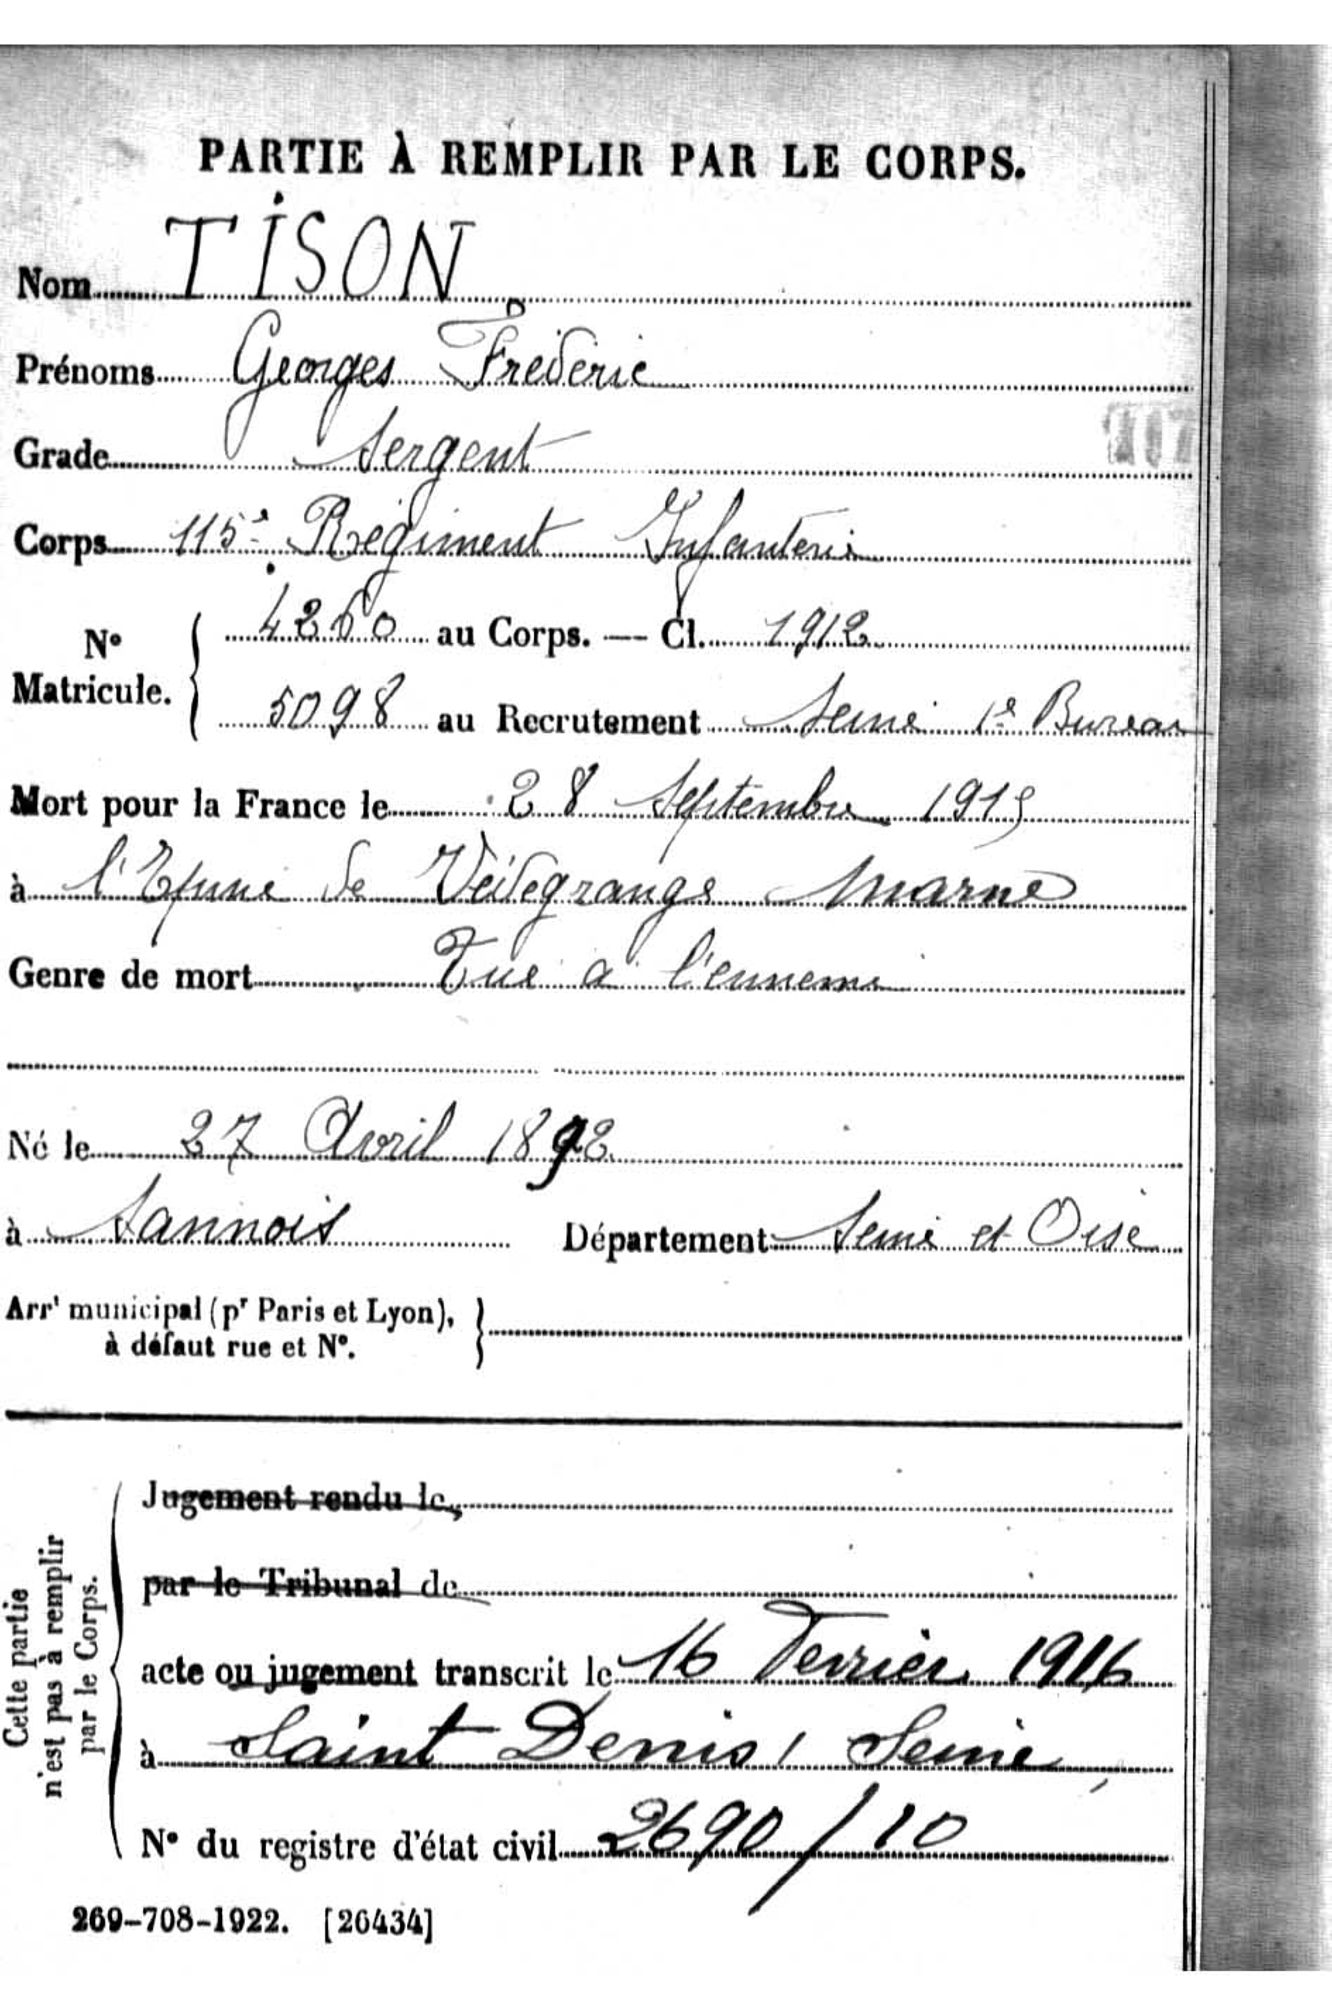 PARTIE À REMPLIR PAR LE CORPS.
Nom TISON
Prénoms Georges Frédéric
Grade Sergent
Corps 115e Régiment Infanterie
N° Matricule. 4260 au Corps. — Cl. 1912
5098 au Recrutement Seine 1e Bureau
Mort pour la France le 28 Septembre 1915
à l'Epine de Védegrange Marne
Genre de mort Tué à l'ennemi
Né le 27 Avril 1892
à Sannois Département Seine et Oise
Arrt municipal (pr Paris et Lyon),
à défaut rue et N°.
Cette partie
n'est pas à remplir
par le Corps.
Jugement rendu le
par le Tribunal de
acte ou jugement transcrit le 16 1916
à Saint Denis, Seine
N° du registre d'état civil 2690/10
269-708-1922. [26434]